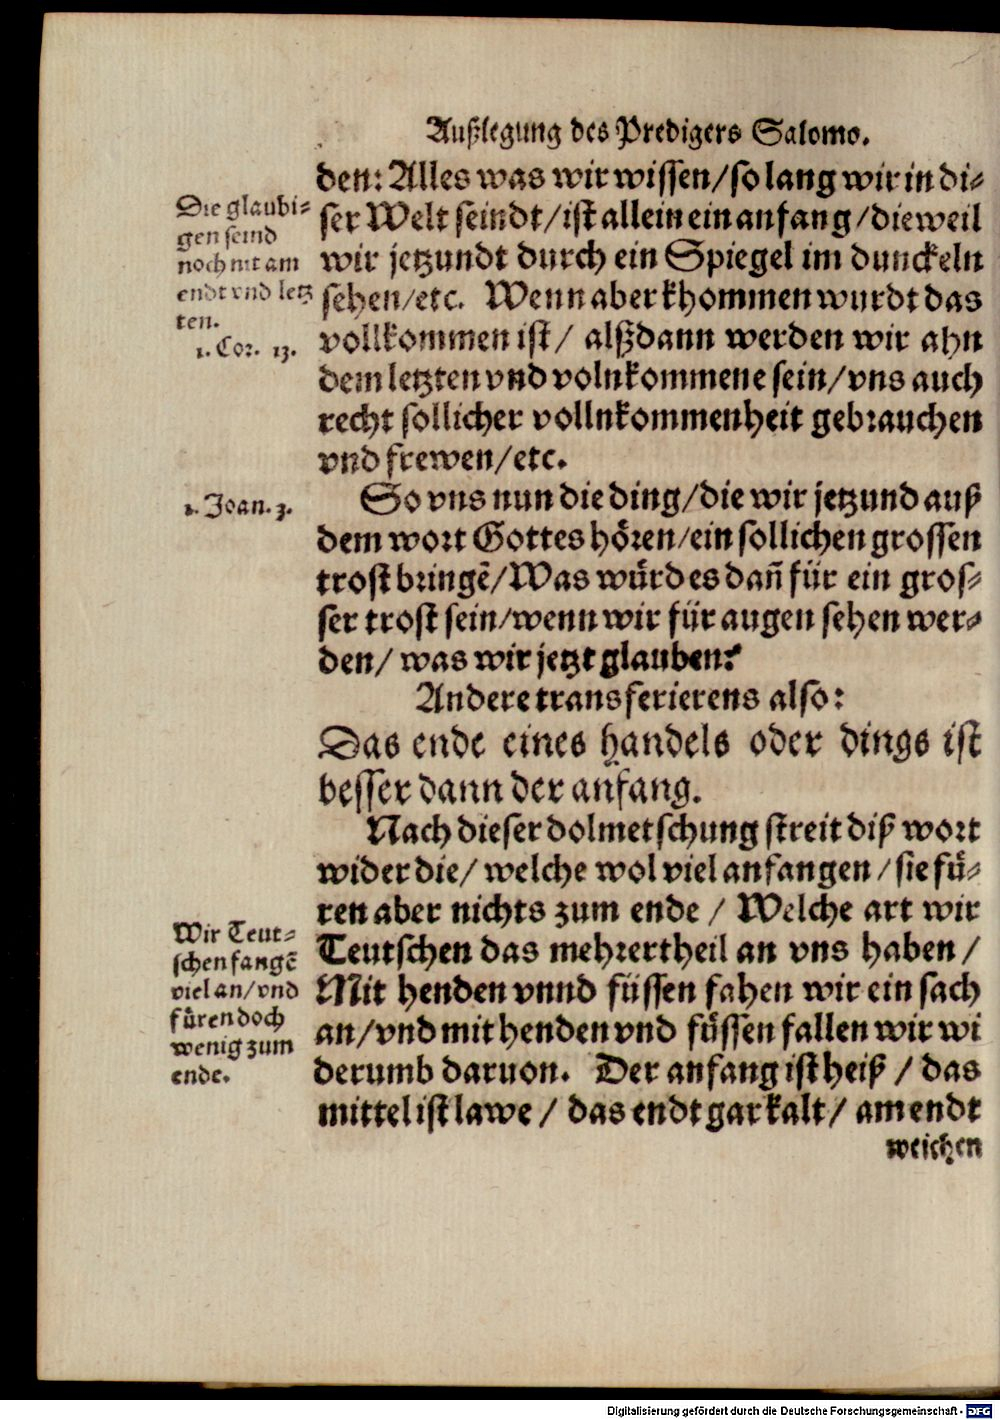 Außlegung des Predigers Salomo.
den: Alles was wir wissen/so lang wir in di⸗
ser Welt seindt/ist allein ein anfang/dieweil
wir jetzundt durch ein Spiegel im dunckeln
sehen/etc. Wenn aber khommen wurdt das
vollkommen ist/ alßdann werden wir ahn
dem letzten vnd volnkommene sein/vns auch
recht sollicher vollnkommenheit gebrauchen
vnd frewen/etc.
Die glaubi⸗
gen seind
noch nit am
endt vnd letz
ten.
1. Cor. 13.
So vns nun die ding/die wir jetzund auß
dem wort Gottes hoͤren/ein sollichen grossen
trost bringē/Was wuͤrd es dañ für ein gros⸗
ser trost sein/wenn wir für augen sehen wer⸗
den/ was wir jetzt glauben?
1. Joan. 3.
Andere transferierens also:
Das ende eines handels oder dings ist
besser dann der anfang.
Nach dieser dolmetschung streit diß wort
wider die/ welche wol viel anfangen/sie fuͤ⸗
ren aber nichts zum ende/ Welche art wir
Teutschen das mehrertheil an vns haben/
Mit henden vnnd füssen fahen wir ein sach
an/vnd mit henden vnd fuͤssen fallen wir wi
derumb daruon. Der anfang ist heiß/ das
mittel ist lawe/ das endt gar kalt/ am endt
Wir Teut⸗
schen fangē
viel an/vnd
fuͤren doch
wenig zum
ende.
weichen
Digitalisierung gefördert durch die Deutsche Forschungsgemeinschaft - DFG